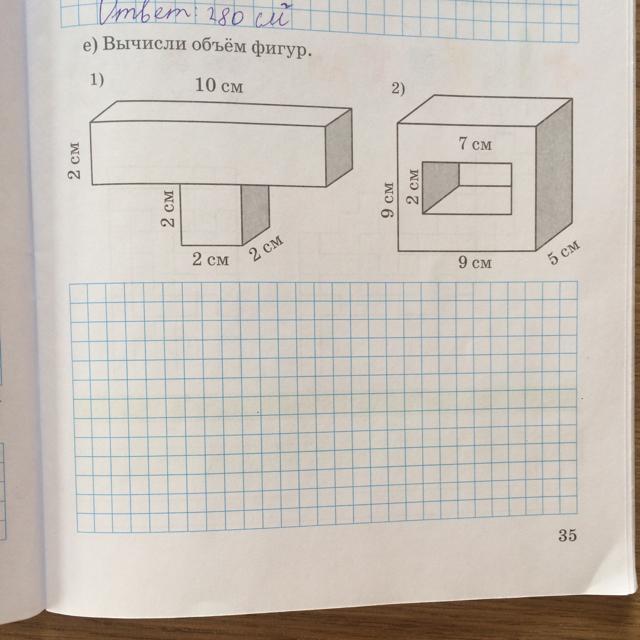 Ответ: 280 см
е) Вычисли объём фигур.
1)
10 см
2 см
2 см
2 см
2 см
2)
7 см
9 см
2 см
9 см
5 см
35